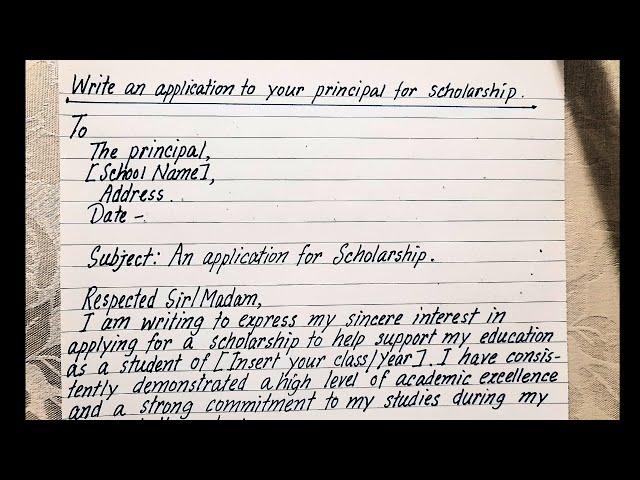 Write an application to your principal for scholarship.
To
The principal,
[School Name],
Address.
Date -
Subject: An application for Scholarship.
Respected Sir/Madam,
I am writing to express my sincere interest in
applying for a scholarship to help support my education
as a student of [Insert your class/year]. I have consis-
tently demonstrated a high level of academic excellence
and a strong commitment to my studies during my